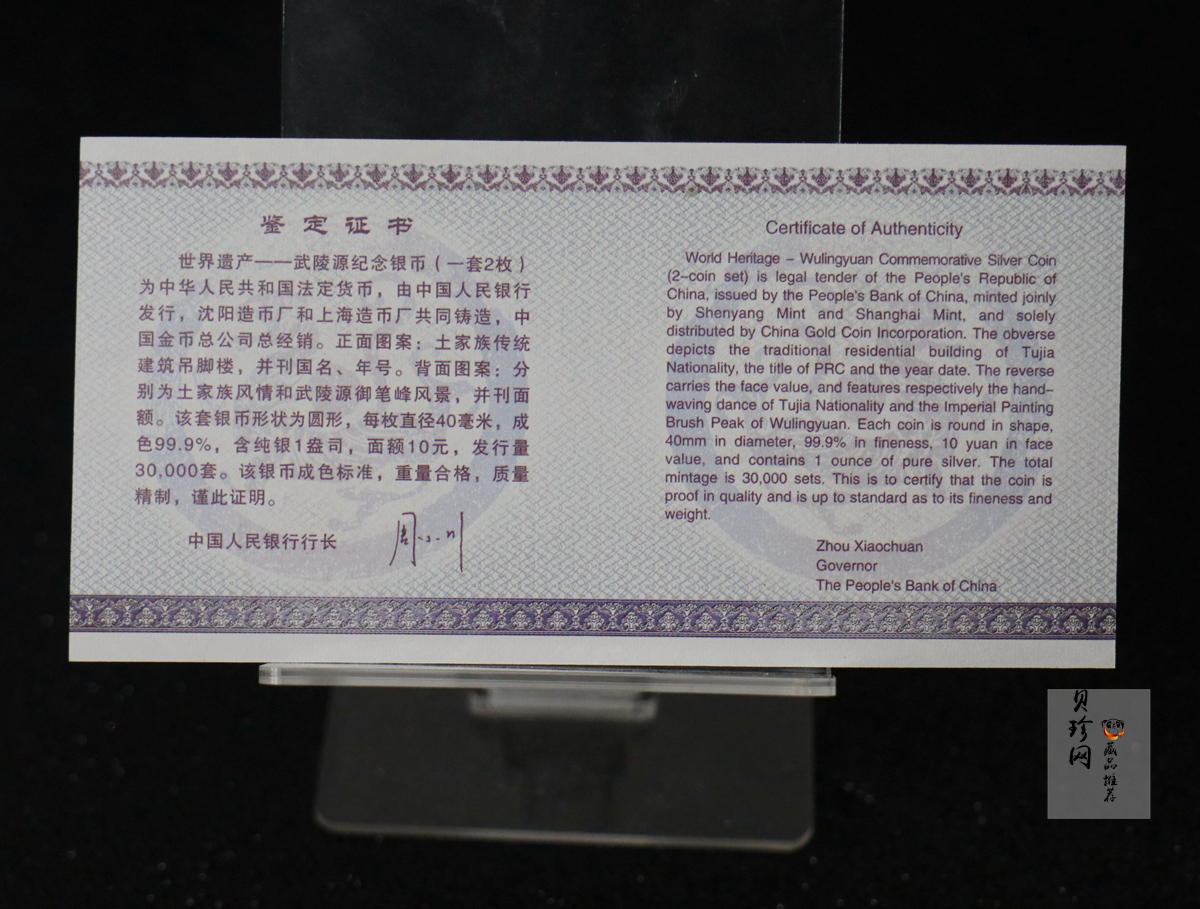 鉴定证书
世界遗产——武陵源纪念银币（一套2枚）
为中华人民共和国法定货币，由中国人民银行
发行，沈阳造币厂和上海造币厂共同铸造，中
国金币总公司总经销。正面图案：土家族传统
建筑吊脚楼，并刊国名、年号。背面图案：分
别为土家族风情和武陵源御笔峰风景，并刊面
额。该套银币形状为圆形，每枚直径40毫米，成
色99.9%，含纯银1盎司，面额10元，发行量
30,000套。该银币成色标准，重量合格，质量
精制，谨此证明。
中国人民银行行长
周小川
Certificate of Authenticity
World Heritage – Wulingyuan Commemorative Silver Coin
(2–coin set) is legal tender of the People's Republic of
China, issued by the People's Bank of China, minted joinly
by Shenyang Mint and Shanghai Mint, and solely
distributed by China Gold Coin Incorporation. The obverse
depicts the traditional residential building of Tujia
Nationality, the title of PRC and the year date. The reverse
carries the face value, and features respectively the hand–
waving dance of Tujia Nationality and the Imperial Painting
Brush Peak of Wulingyuan. Each coin is round in shape,
40mm in diameter, 99.9% in fineness, 10 yuan in face
value, and contains 1 ounce of pure silver. The total
mintage is 30,000 sets. This is to certify that the coin is
proof in quality and is up to standard as to its fineness and
weight.
Zhou Xiaochuan
Governor
The People's Bank of China
贝珍网
藏品推荐